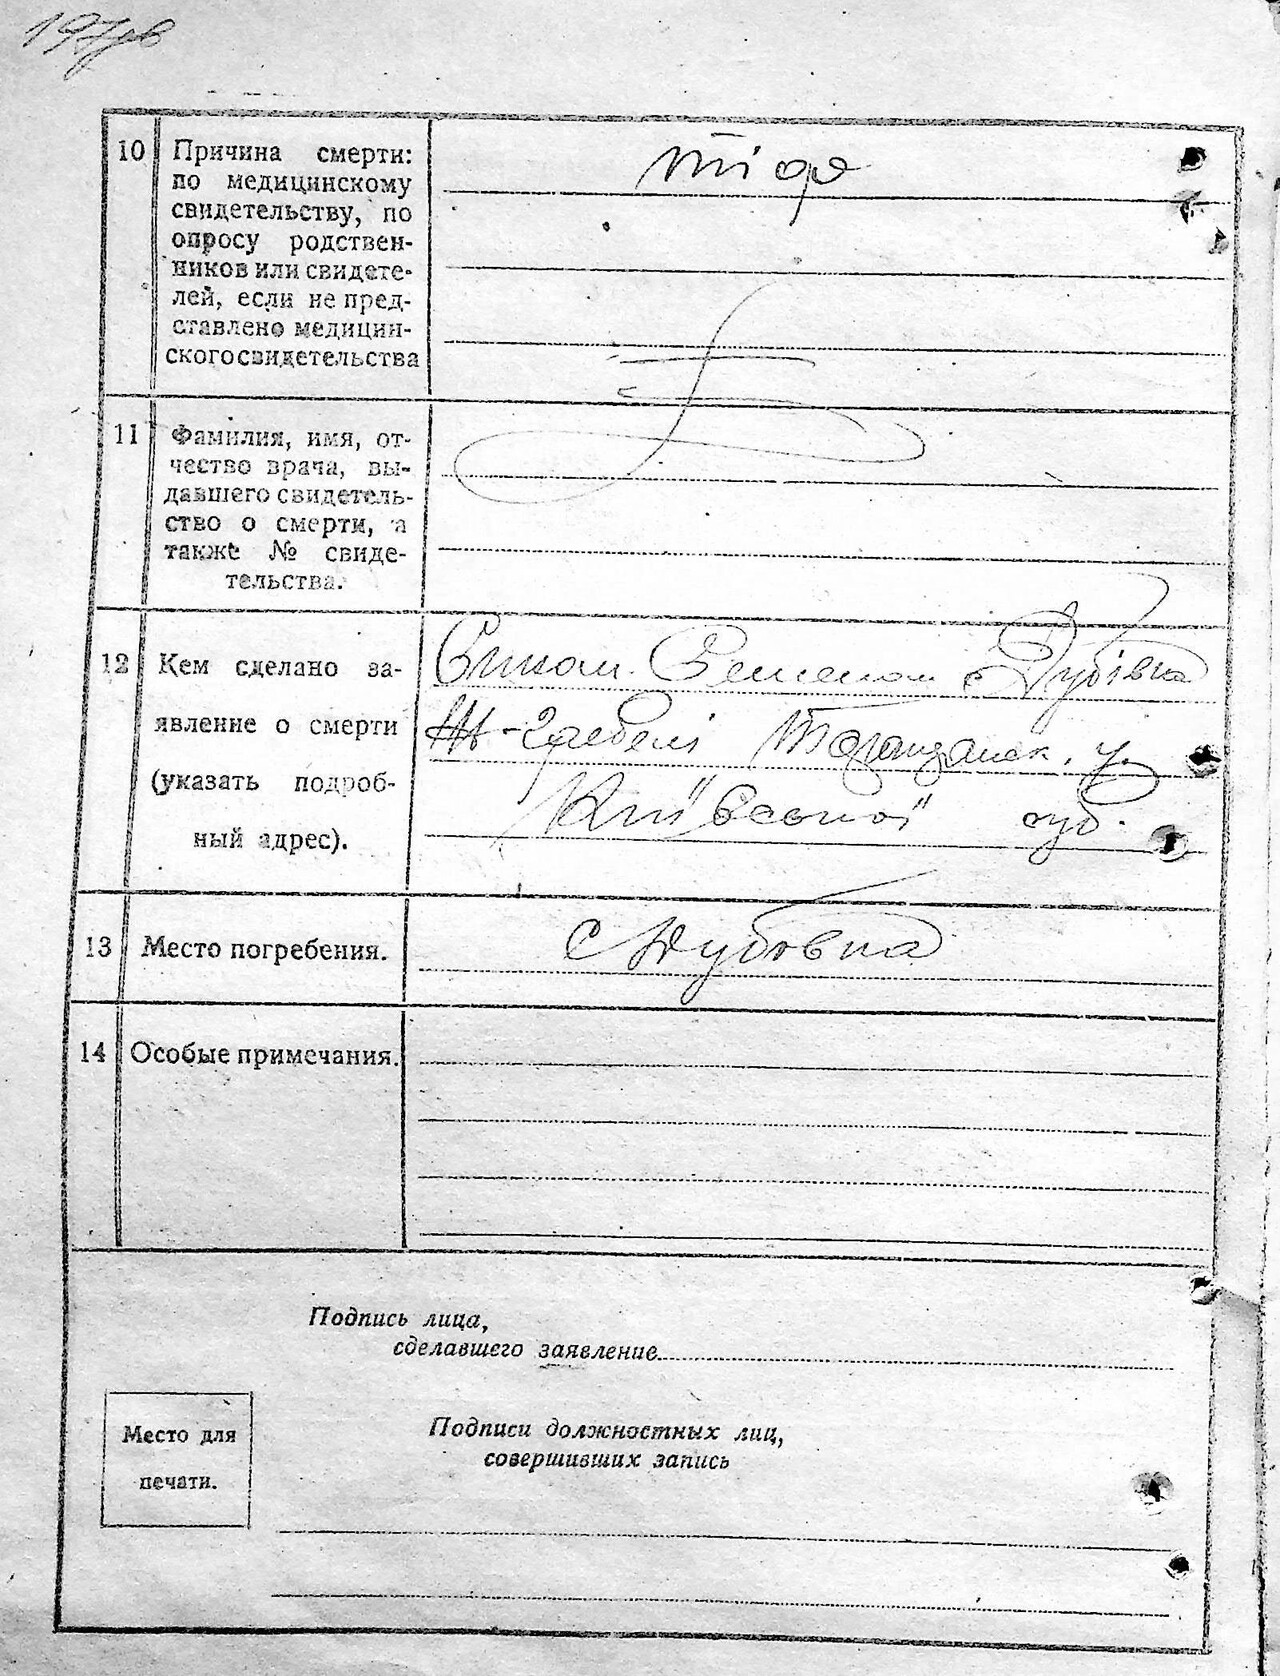 10 Причина смерти:
по медицинскому
свидетельству, по
опросу родствен-
ников или свидете-
лей, если не пред-
ставлено медицин-
ского свидетельства
11 Фамилия, имя, от-
чество врача, вы-
давшего свидетель-
ство о смерти, а
также № свиде-
тельства.
12 Кем сделано за-
явление о смерти
(указать подроб-
ный адрес).
Сином Семеном с Дубівка
Таращанск. у.
Київської губ.
13 Место погребения.
с Дубовка
14 Особые примечания.
Подпись лица,
сделавшего заявление
Место для
печати.
Подписи должностных лиц,
совершивших запись